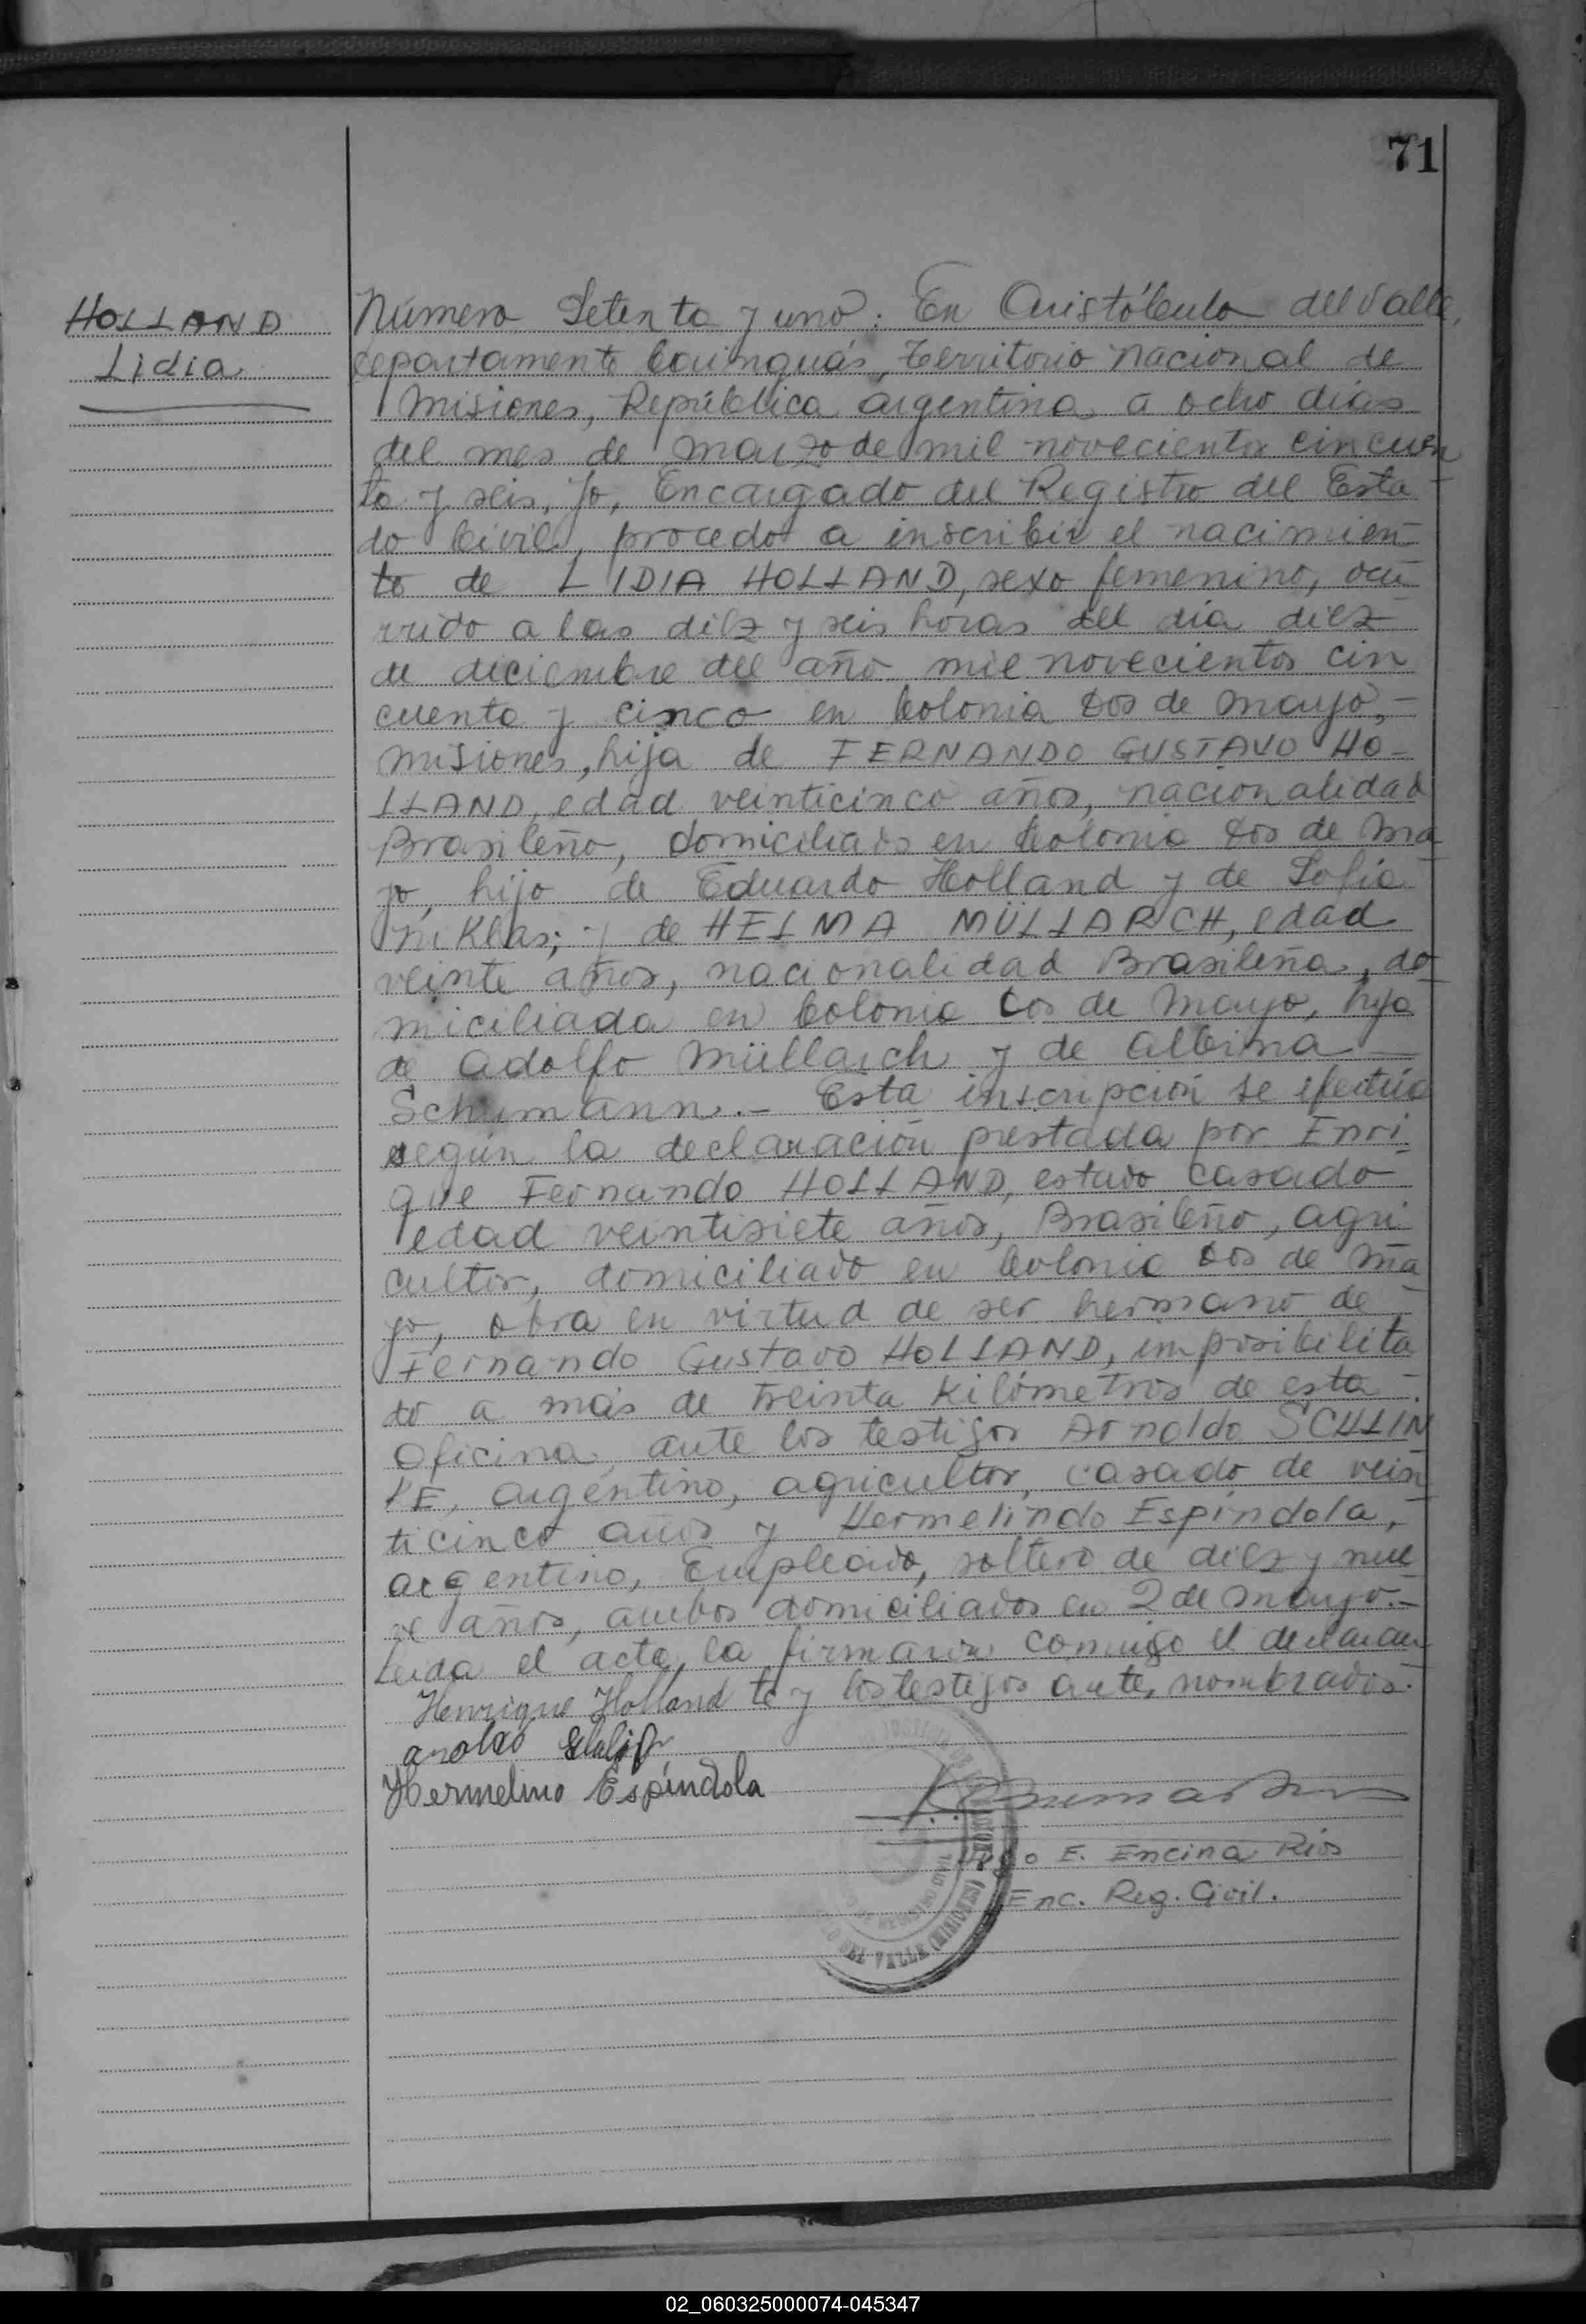 71
HOLLAND
Lidia
Número Setenta y uno. En Aristóbulo del Valle,
departamento Cainguás, territorio nacional de
Misiones, República Argentina, a ocho días
del mes de marzo de mil novecientos cincuen
ta y seis, Yo, Encargado del Registro del Esta-
do Civil, procedo a inscribir el nacimien-
to de LIDIA HOLLAND, sexo femenino, ocu-
rrido a las diez y seis horas del día diez
de diciembre del año mil novecientos cin
cuenta y cinco en Colonia Dos de Mayo,-
Misiones, hija de FERNANDO GUSTAVO HO-
LLAND, edad veinticinco años, nacionalidad
Brasileño, domiciliado en Colonia Dos de Ma
yo, hijo de Eduardo Holland y de Sofia
Niklas; y de HELMA MÜLLARCH, edad
veinte años, nacionalidad Brasileña, do-
miciliada en Colonia Dos de Mayo, hija
de Adolfo Müllarch y de Albina
Schumann.- Esta inscripción se efectúa
según la declaración prestada por Enri-
que Fernando HOLLAND, estado casado
edad veintisiete años, Brasileño, agri-
cultor, domiciliado en Colonia Dos de Ma
yo, obra en virtud de ser hermano de
Fernando Gustavo HOLLAND, imposibilita
do a más de treinta Kilómetros de esta
Oficina, ante los testigos Arnoldo SCHLIN
KE, argentino, agricultor, casado de vein
ticinco años y Hermelindo Espíndola,
argentino, Empleado, soltero de diez y nue
ve años, ambos domiciliados en 2 de Mayo.-
Leida el acta, la firmaron conmigo el declaran
te y los testigos ante, nombrados.
Henrique Holland
Hermelino Espíndola
Hugo E. Encina Rios
Enc. Reg. Civil.
DEL VALLE (MISIONES)
02_060325000074-045347